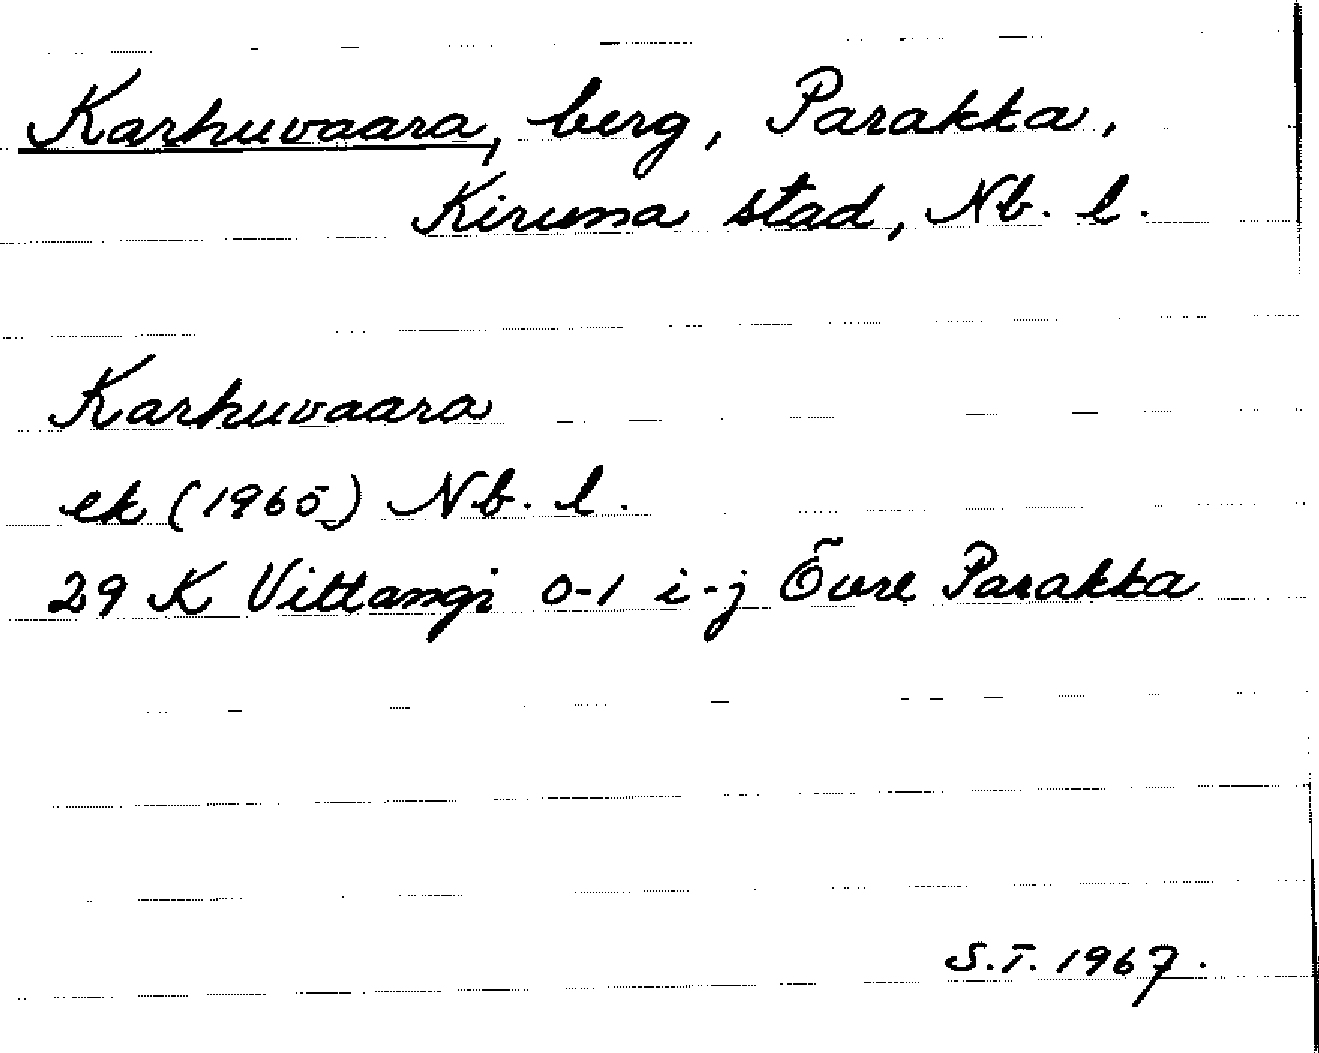 Karhuvaara, berg, Parakka,
Kiruna stad, Nb. l.
Karhuvaara
ek (1965) Nb. l.
29 K Vittangi 0-1 i-j Övre Parakka
S.T. 1967.